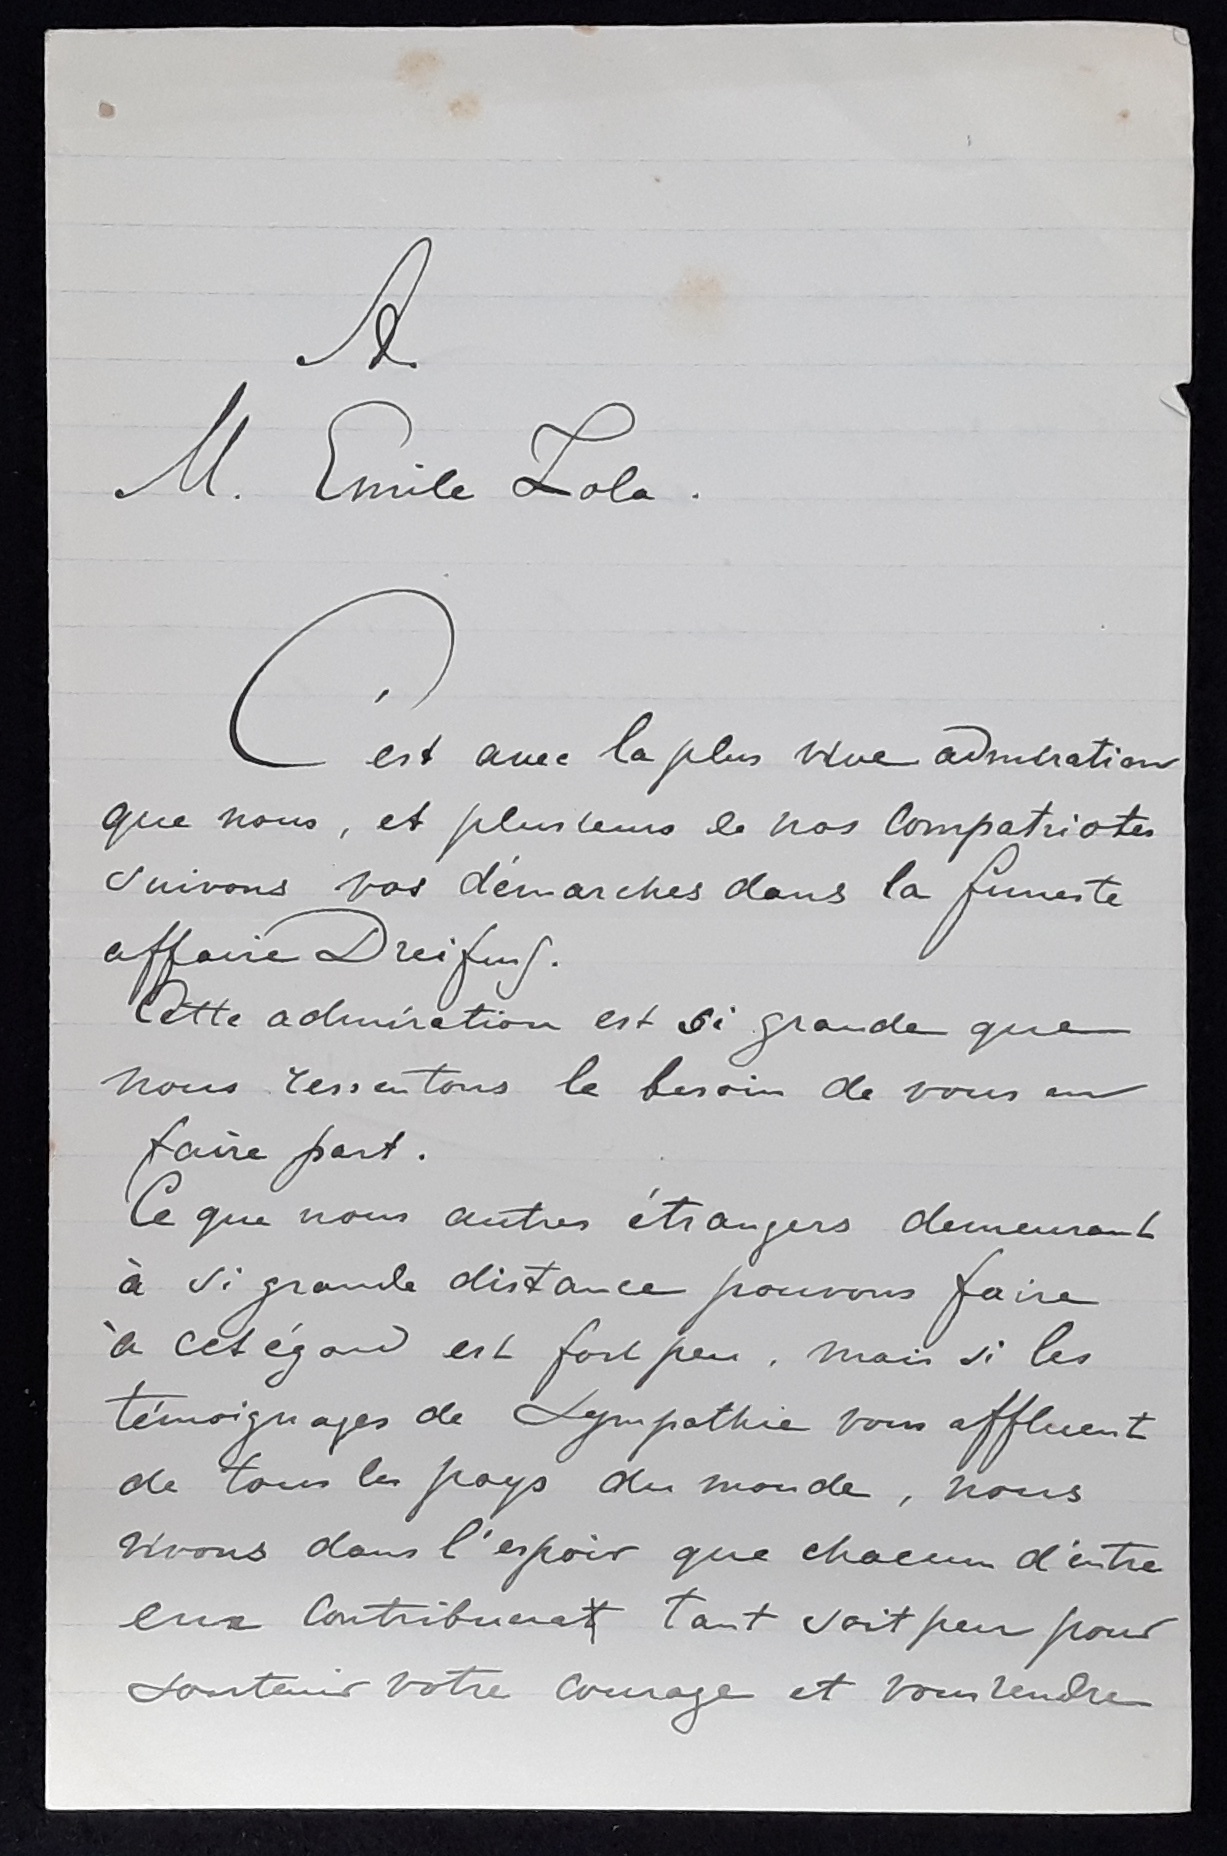 A
M. Emile Zola.
C'est avec la plus vive admiration
que nous, et plusieurs de nos compatriotes
suivons vos démarches dans la funeste
affaire Dreifuss.
Cette admiration est si grande que
nous ressentons le besoin de vous en
faire part.
Ce que nous autres étrangers demeurant
à si grande distance pouvons faire
à cet égard est fort peu, mais si les
témoignages de Sympathie vous affluent
de tous les pays du monde, nous
vivons dans l'espoir que chacun d'entre
eux contribuera tant soit peu pour
soutenir votre courage et vous rendre